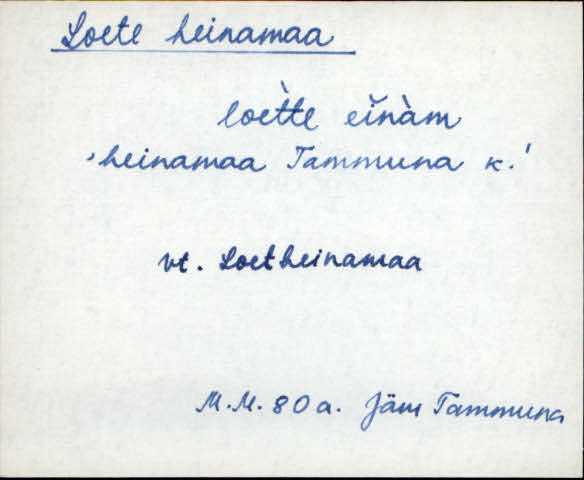 Loete heinamaa
loètte eĭnàm
'heinamaa Tammuna k.'
vt. Loetheinamaa
M.M. 80 a. Jäm Tammuna